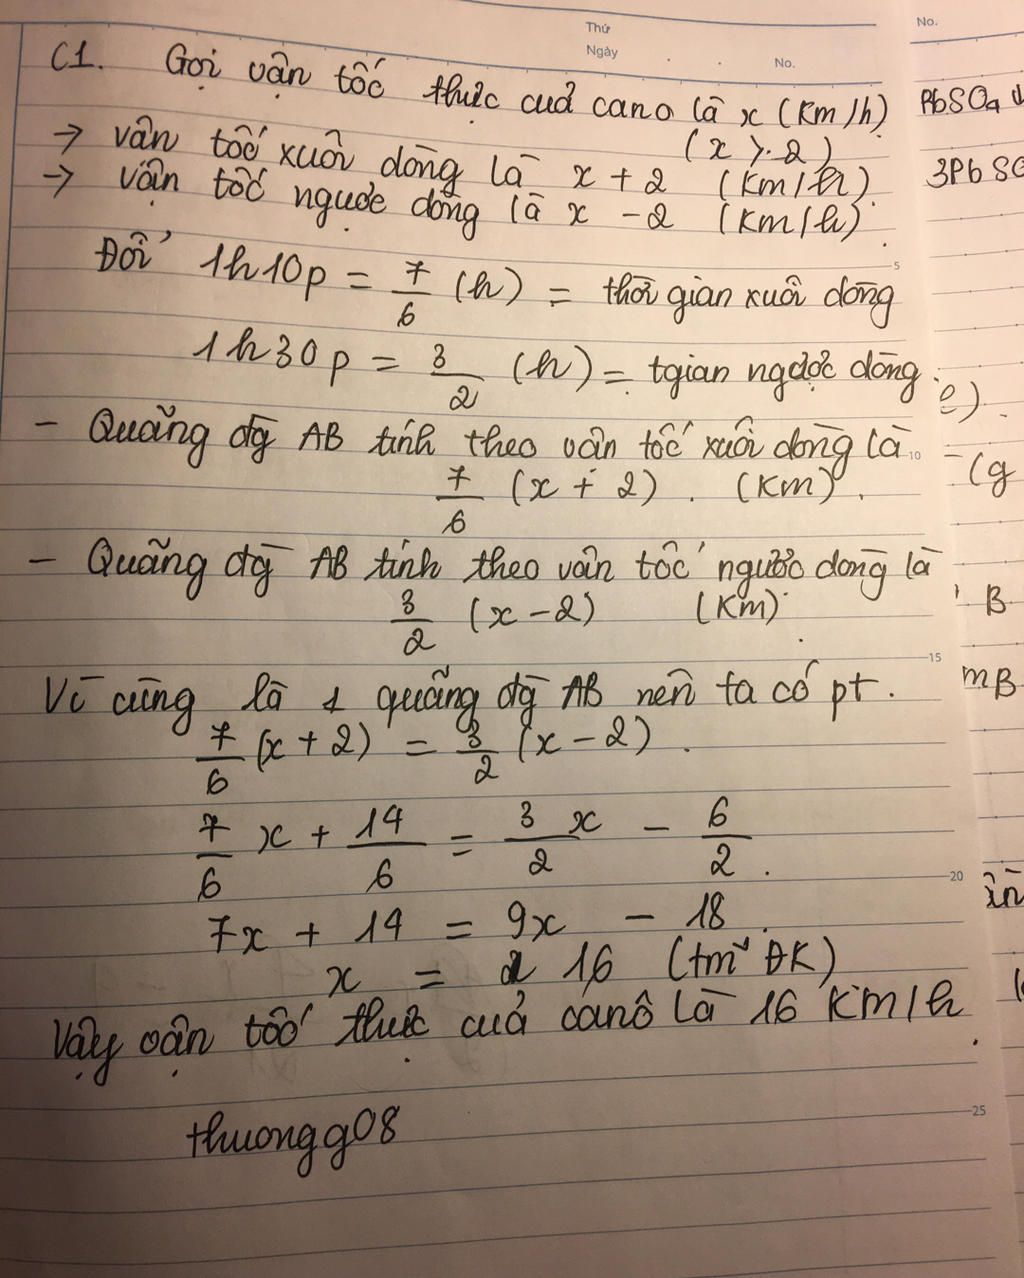 Thứ
Ngày
No.
No.
C1. Gọi vận tốc thực cuả cano là x (Km/h)
(x > 2)
→ vân tốc xuôi dòng là x + 2 (Km/h)
→ vận tốc ngược dòng là x - 2 (Km/h).
Đổi 1h10p = 7/6 (h) = thời gian xuôi dòng
5
1h30p = 3/2 (h) = tgian ngược dòng
- Quãng đg AB tính theo vân tốc xuôi dòng là
10
7/6 (x + 2). (Km).
- Quãng đg AB tính theo vân tốc ngược dong là
3/2 (x - 2) (Km).
15
Vì cùng là 1 quãng đg AB nên ta có pt.
7/6 (x + 2) = 3/2 (x - 2).
7/6 x + 14/6 = 3x/2 - 6/2.
20
7x + 14 = 9x - 18.
x = 16 (tm ĐK)
Vậy vận tốc thực cuả canô là 16 Km/h.
25
thuongg08
PbSO4 ↓
3PbSO
e).
= (g
B
mB
in